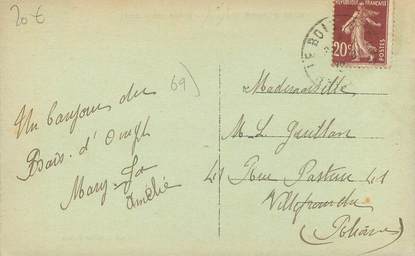 20 €
69)
Un bonjour du
Bois. d'Oingt
Mary et
Amélie
RÉPUBLIQUE FRANÇAISE
20c
POSTES
LE BOI
Mademoiselle
M. L.
41 Rue Pasteur 41
Villefranche
(Rhône)